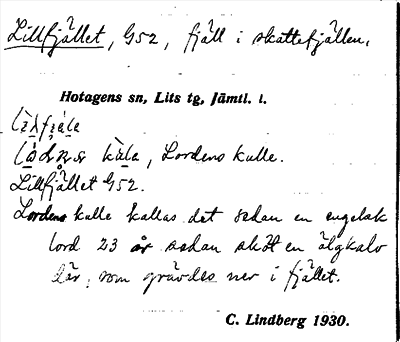 Lillfjället, G52, fjäll i skattefjällen.
Hotagens sn, Lits tg, Jämtl. l.
kàla, Lordens kulle.
Lillfjället G52.
Lordens kulle kallas det sedan en engelsk
lord 23 år sedan sköt en älgkalv
där, som grävdes ner i fjället.
C. Lindberg 1930.